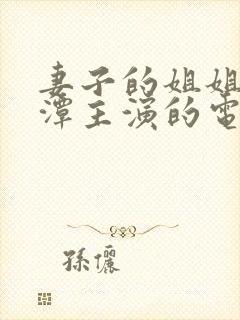 妻子的姐姐
潭主演的電
孫儷